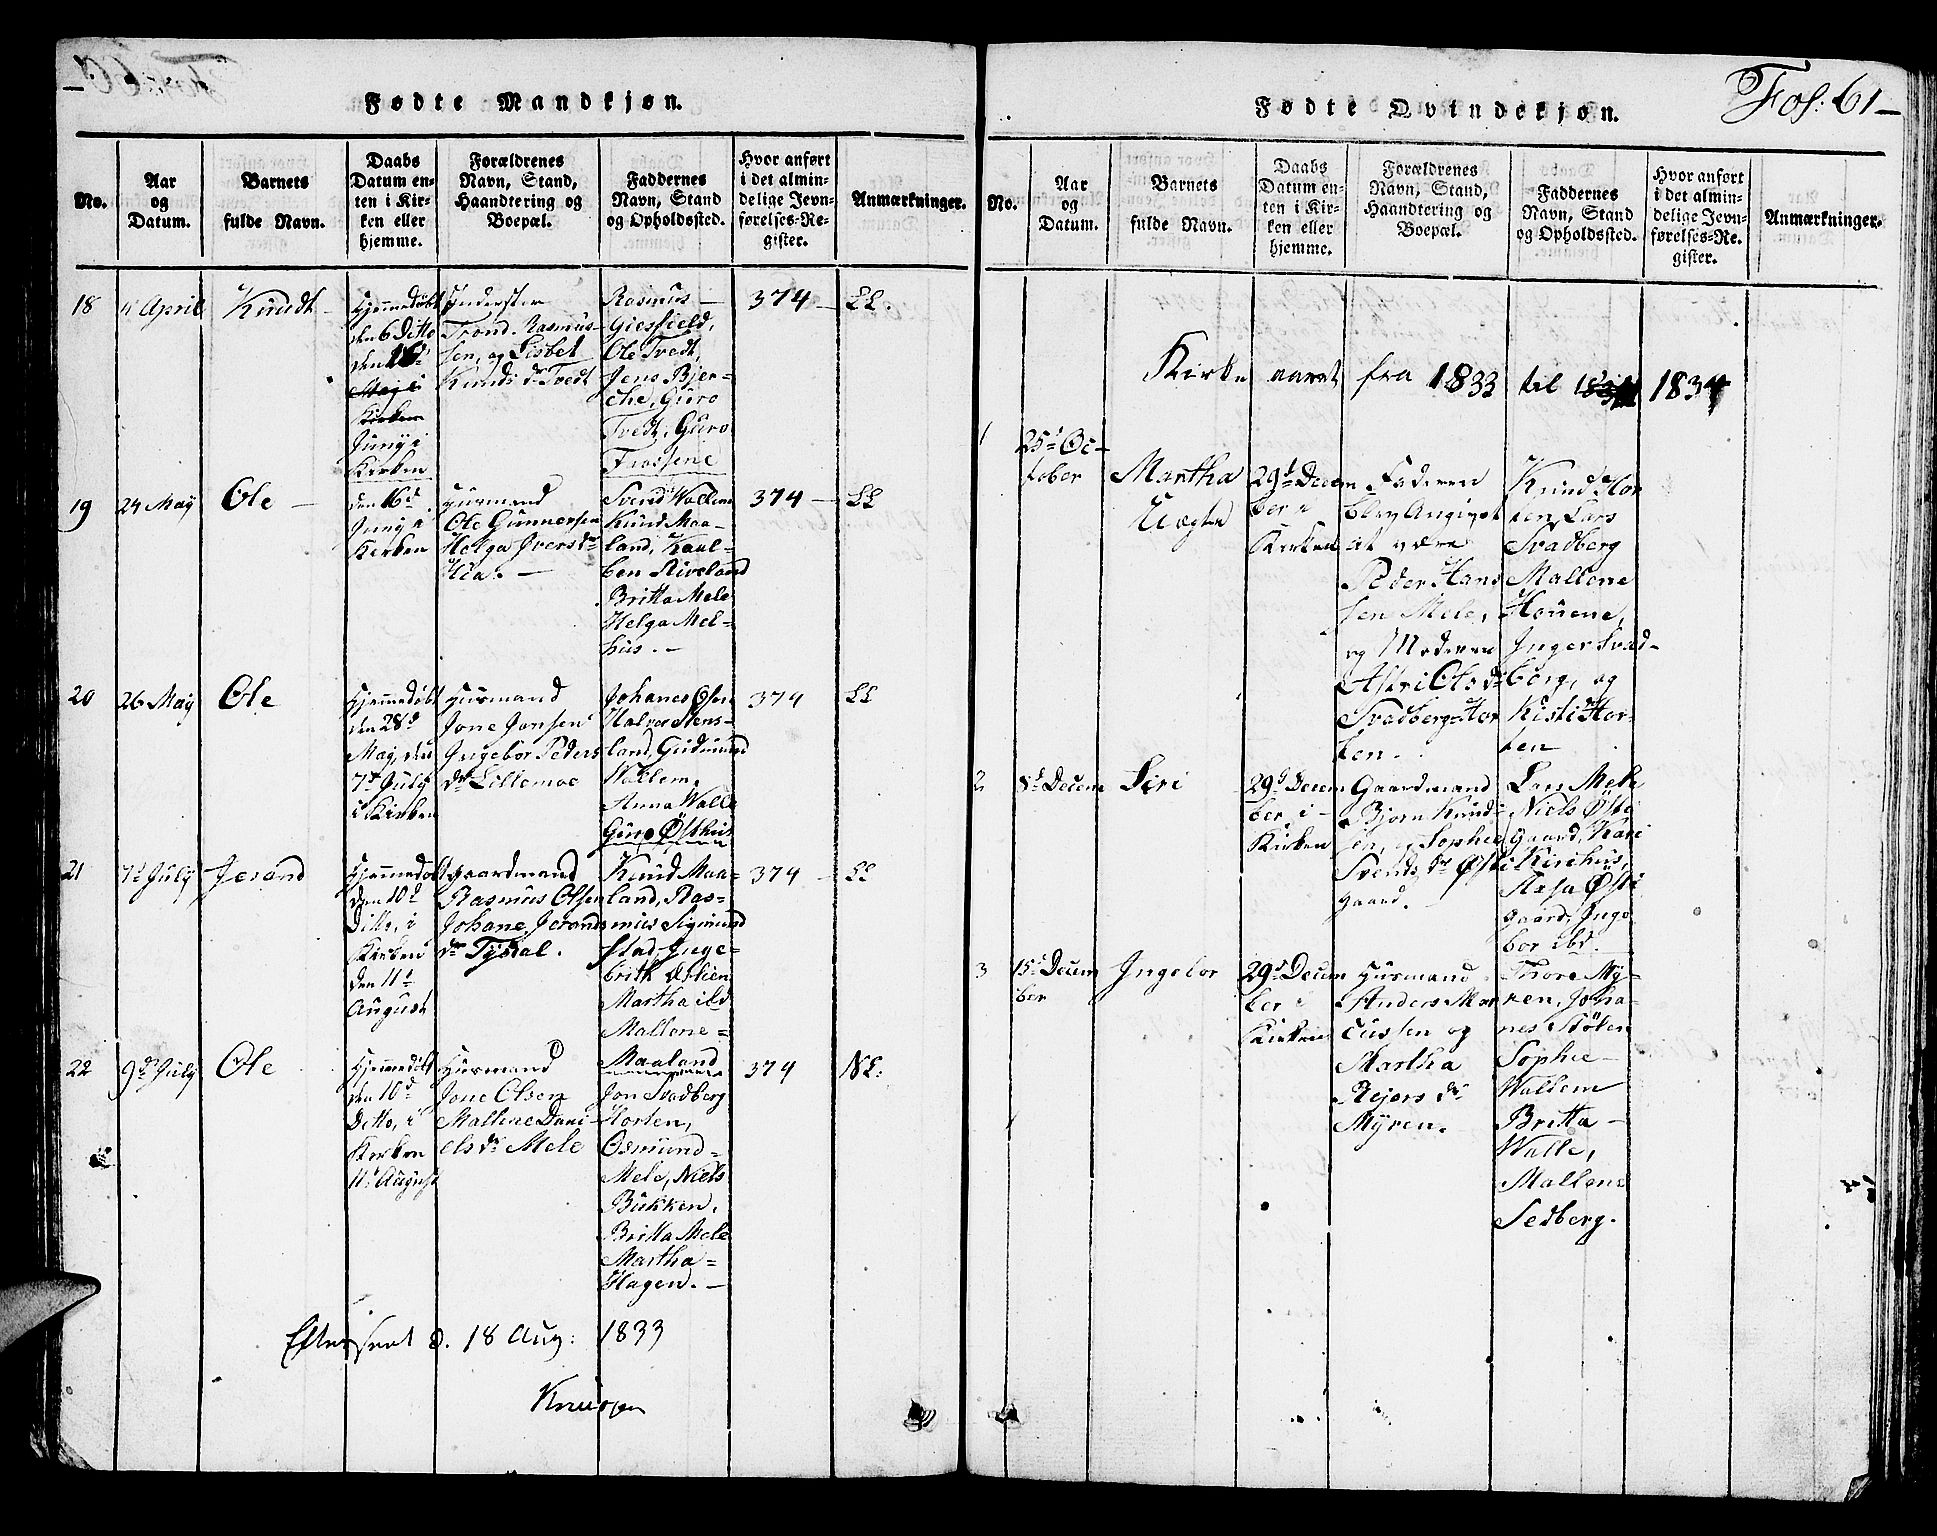 Fødte Mandkjøn.
No.
Aar
og
Datum.
Barnets
fulde Navn.
Daabs
Datum en-
ten i Kir-
ken eller
hjemme.
Forældrenes
Navn, Stand,
Haandtering og
Boepæl.
Faddernes
Navn, Stand
og Opholdssted.
Hvor anført
i det almin-
delige Jevn-
førelses-Re-
gister.
Anmærkninger.
18
April
Knudt
Hjemmedøbt
den 6 Ditto
den 16d
May i
Kirken
Juny i
Kirken
Inderster
Trond Rasmus-
sen, og Lisbet
Knuds dr Tvedt
Rasmus
Giesfield,
Ole Tvedt,
Jens Bjer-
che, Guro
Tvedt, Guro
Frossene
374
LL.
19
24 May
Ole
den 16d
Juny i
Kirken
Huusmand
Ole Gunnersen
Helga Iversdr
Hia.
Svend Wallem
Knud Maa-
land, Kaal-
ben Riveland
Britta Mele
Helga Mel-
hus.
374
LL
20
26 May
Ole
Hjemmedøbt
den 28d
May, den
7d July
i Kirken
Huusmand
Jone Jonsen
Ingebor Peders
dr Lillemoe
Johanes Osen
Halvor Stens-
land, Gudmund
Wallem,
Anna Walle
Guro Østhus
374
LL
21
7d July
Jerand
Hjemmedøbt
den 10d
Ditto, i
Kirken
den 11d
August
Gaardmand
Rasmus Olsen
Johane Jerands
dr Tysdal.
Knud Maa-
land, Ras-
mus Sigmund
stad, Inge-
brith Østhen
Martha ibd
Mallene
Maaland
374
LL
22
9d July
Ole
Hjemmedøbt
den 10d
Ditto, i
Kirken
11d August
Huusmand
Jone Olsen
Mallene Dani-
elsdr Mele
Jon Svadberg
Horten,
Osmund
Mele, Niels
Bukken,
Britta Mele
Martha
Hagen.
374
NL.
Efterseet d. 18 Aug: 1833
Knudsen
Fol: 61
Fødte Qvindekjøn.
No.
Aar
og
Datum.
Barnets
fulde Navn.
Daabs
Datum en-
ten i Kir-
ken eller
hjemme.
Forældrenes
Navn, Stand,
Haandtering og
Boepæl.
Faddernes
Navn, Stand
og Opholdssted.
Hvor anført
i det almin-
delige Jevn-
førelses-Re-
gister.
Anmærkninger.
Kirke aaret fra 1833 til 1834 1834
1
25d Oc-
tober
Martha
Uægte
29d Decem
ber i
Kirken
Faderen
blev Angivet
at være
Peder Hans
sen Mele,
og Moderen
Astri Olsdr
Svadberg Hor
ten.
Knud Hor
ten, Lars
Svadberg
Mallene
Houene,
Inger Svad-
berg, og
Kisti Hor-
ten
2
8d Decem
Siri
29d Decem
ber, i
Kirken
Gaardmand
Bjorn Knud-
sen, og Sophie
Svends dr Østi
gaard.
Lars Mele
Niels Østi
gaard, Kari
Kirihus,
Aasa Østi
gaard, Inge
bor ibd.
3
15d Decem
ber
Ingebor
29d Decem
ber i
Kirken
Huusmand
Anders Mar
cussen og
Martha
Rejers dr
Myren.
Thore My-
ren, Joha-
nes Stølen
Sophie
Wallem
Britta
Walle,
Mallene
Sedberg.